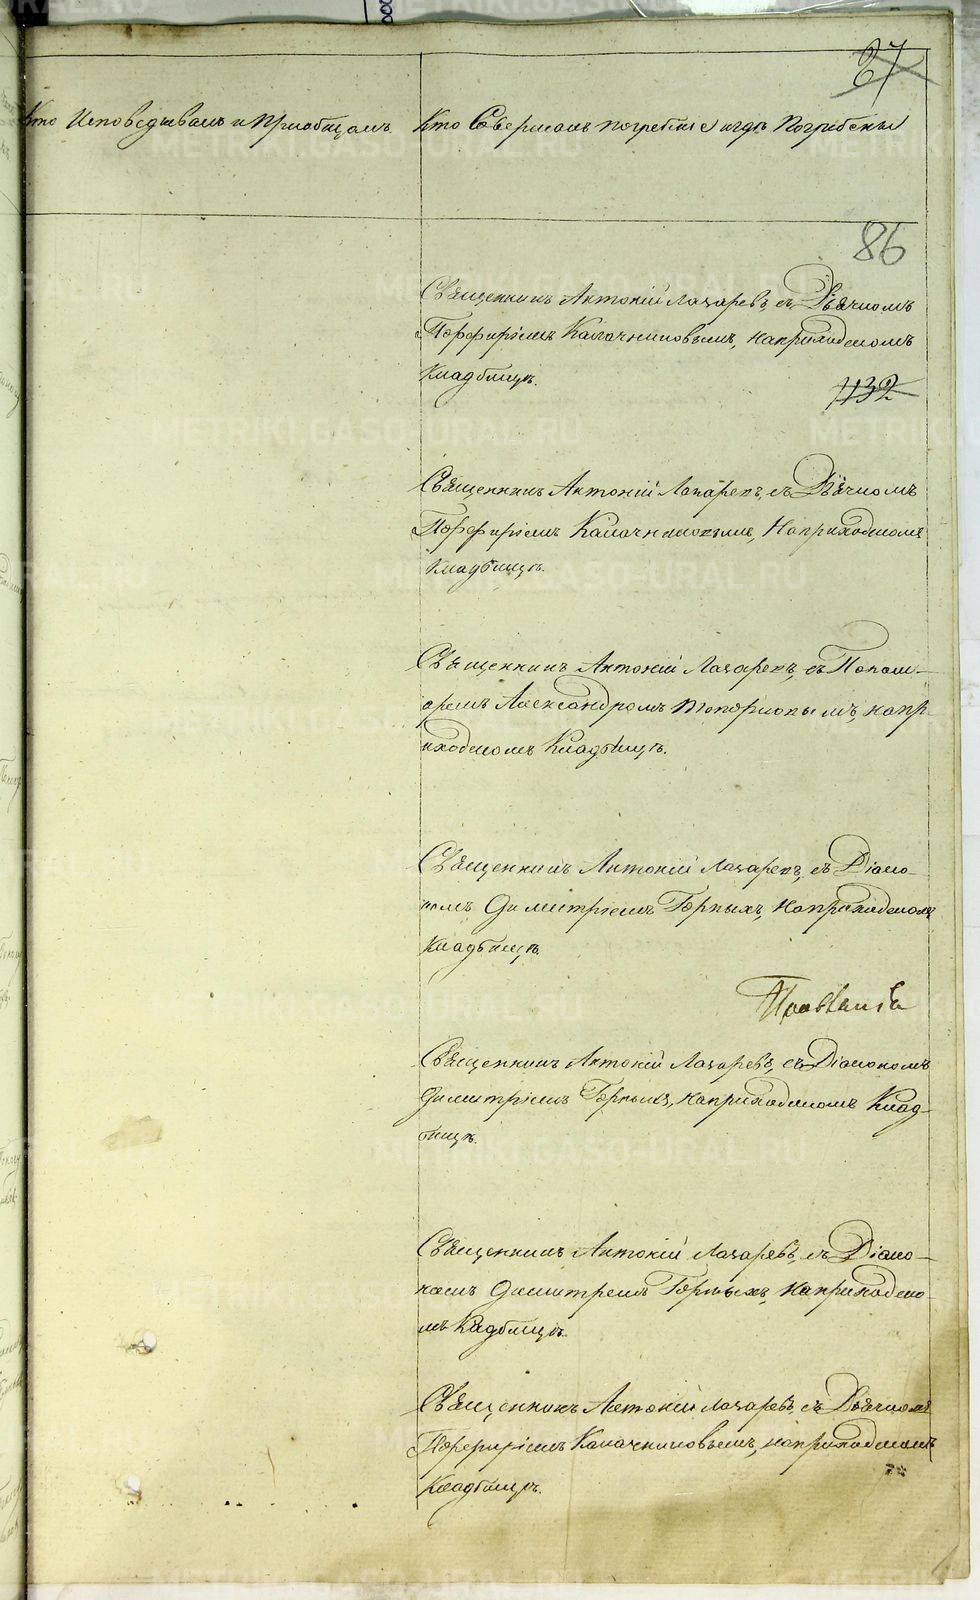 37
Кто Исповедывалъ и Приобщалъ.
Кто Совершалъ погребенiе и гдѣ Погребены
86
Священникъ Антонiй Лазаревъ, съ Дьячкомъ
Порфирiемъ Калачниковымъ, на приходскомъ
Кладбищѣ.
1132
Священникъ Антонiй Лазаревъ, съ Дьячкомъ
Порфирiемъ Калачниковымъ, На приходскомъ
Кладбищѣ.
Священникъ Антонiй Лазаревъ, съ Поном-
аремъ Александромъ Топорковымъ, на пр-
иходскомъ Кладбищѣ.
Священникъ Антонiй Лазаревъ, съ Дiако-
номъ Димитрiемъ Горныхъ, На приходскомъ
Кладбищѣ.
Священникъ Антонiй Лазаревъ, съ Дiакономъ
Димитрiемъ Горныхъ, на приходскомъ Клад-
бищѣ.
Священникъ Антонiй Лазаревъ, съ Дiако-
номъ Димитремъ Горныхъ, На приходско-
мъ Кладбищѣ.
Священникъ Антонiй Лазаревъ, съ Дьячкомъ
Порфирiемъ Калачниковымъ, на приходскомъ
Кладбищѣ.
METRIKI.GASO-URAL.RU